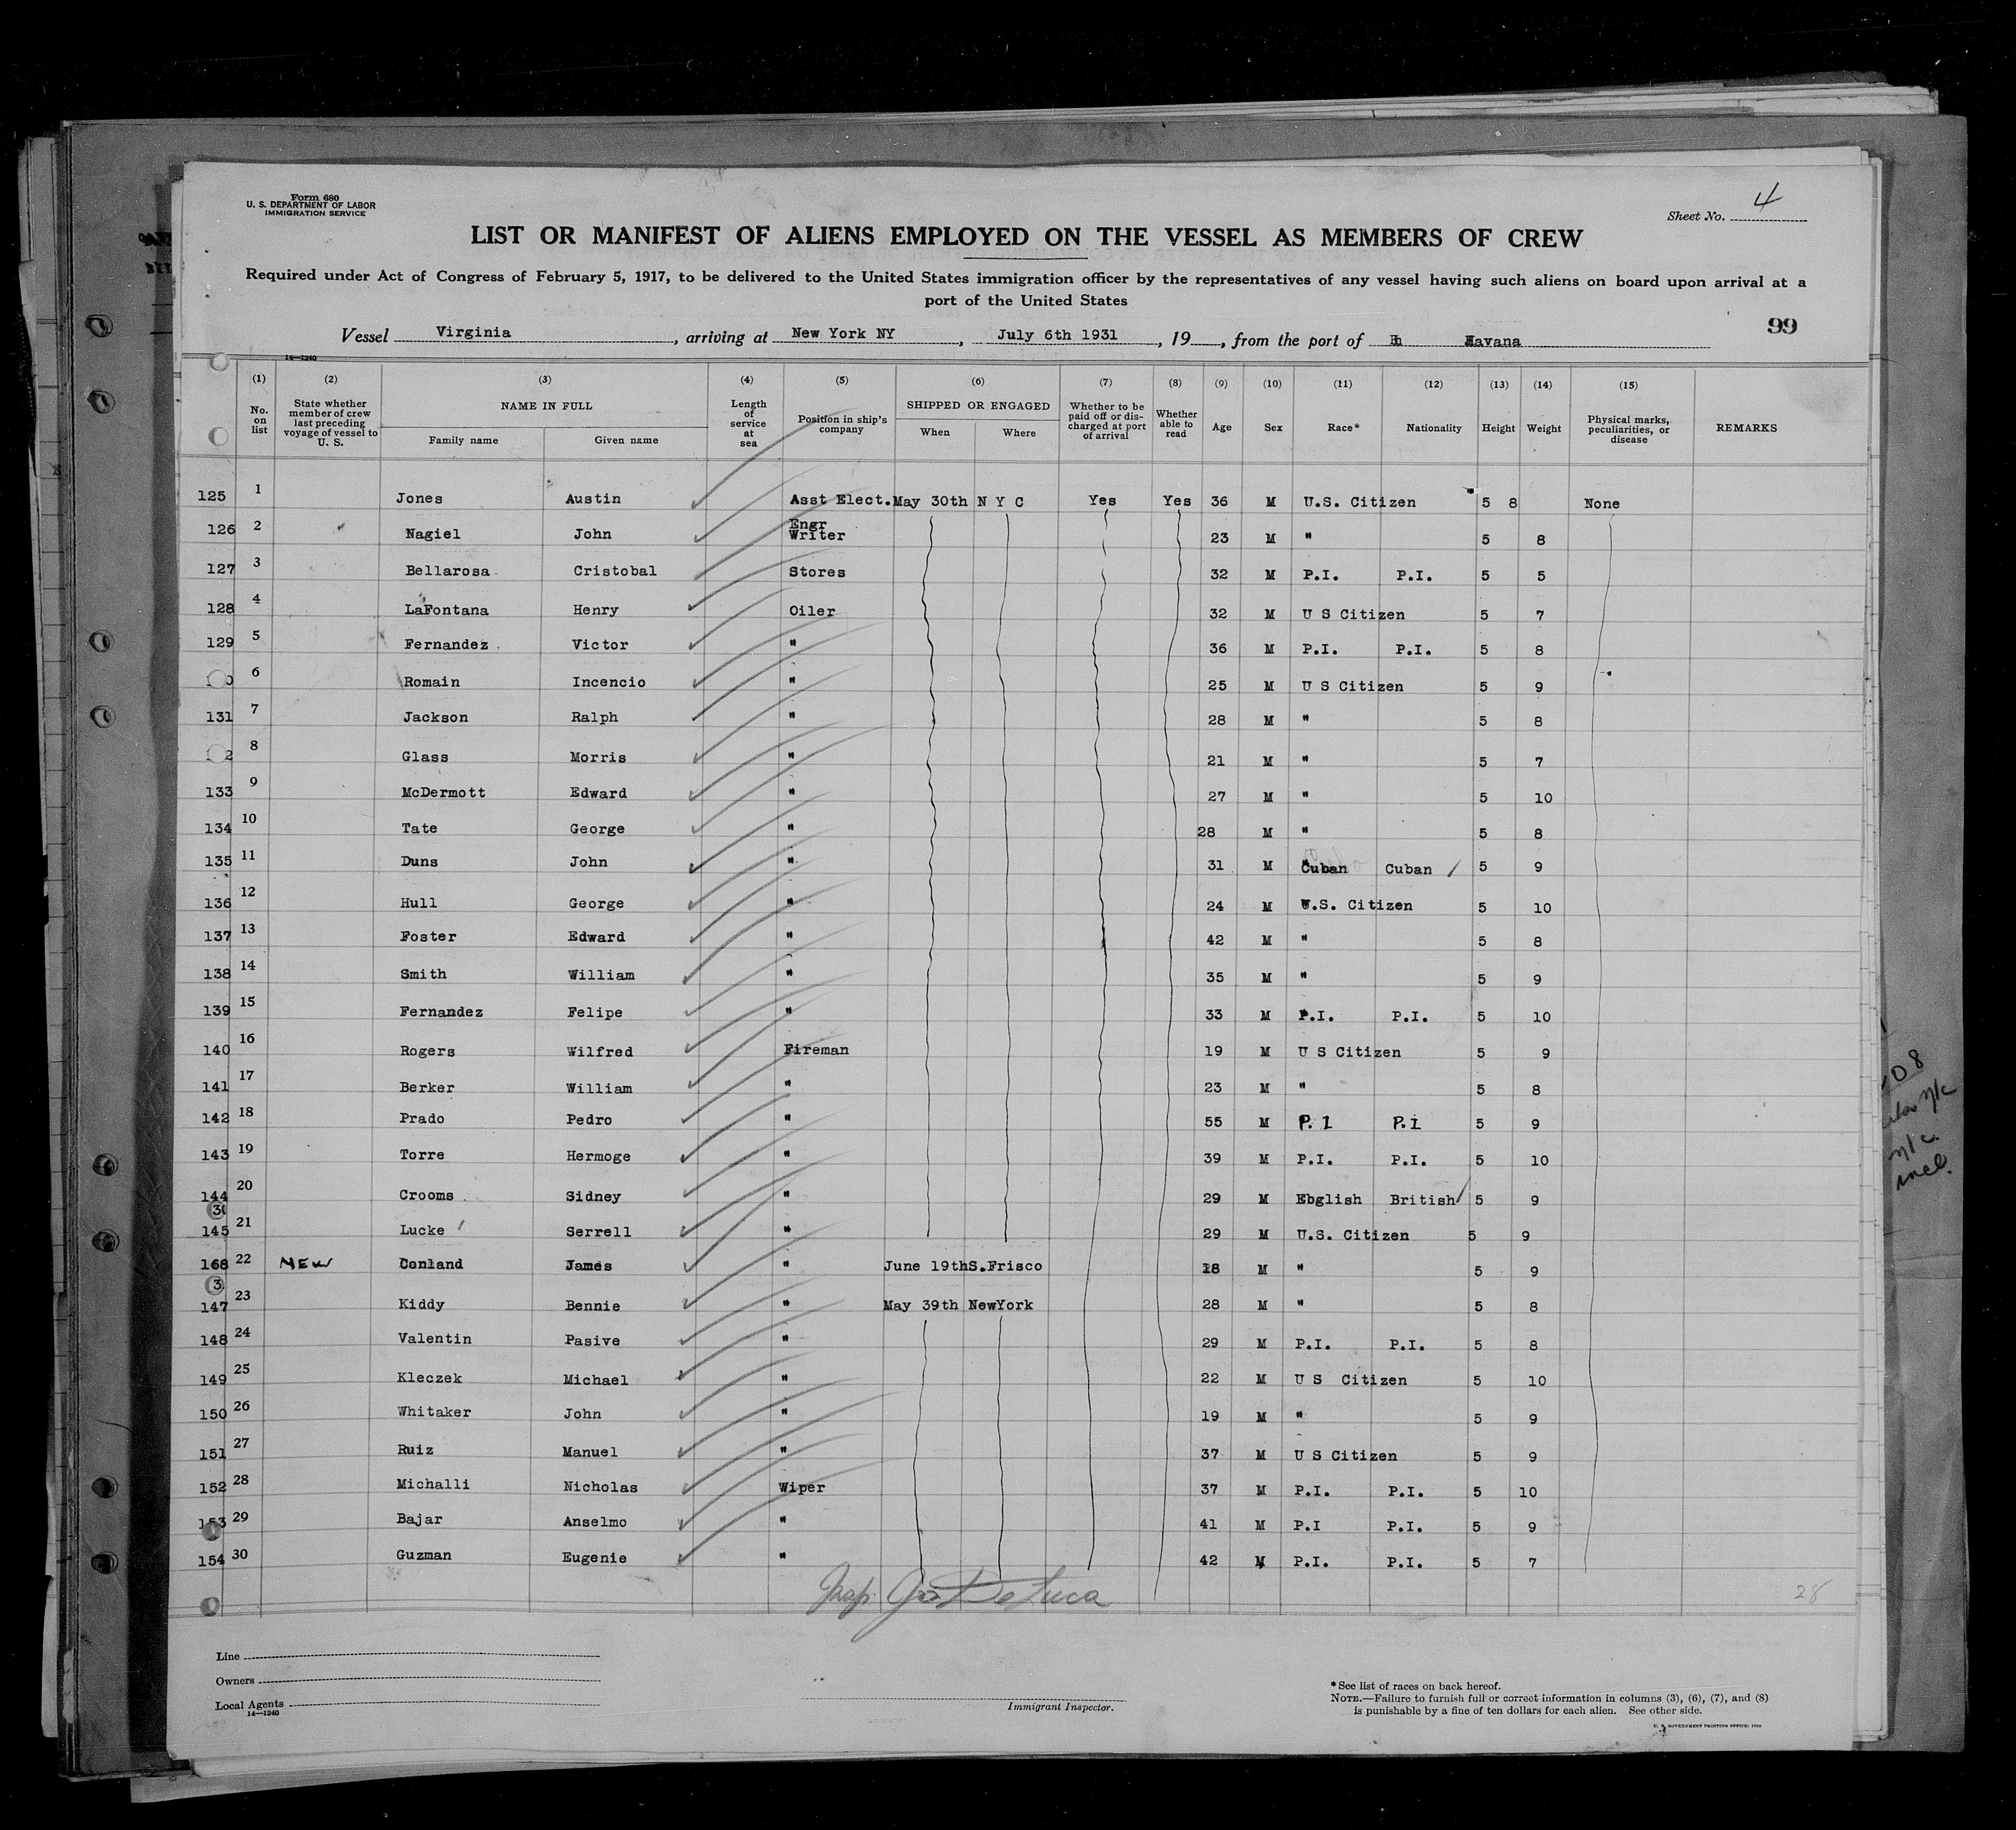 Form 680
U. S. DEPARTMENT OF LABOR
IMMIGRATION SERVICE
Sheet No. 4
LIST OR MANIFEST OF ALIENS EMPLOYED ON THE VESSEL AS MEMBERS OF CREW
Required under Act of Congress of February 5, 1917, to be delivered to the United States immigration officer by the representatives of any vessel having such aliens on board upon arrival at a
port of the United States
99
Vessel Virginia, arriving at New York NY, July 6th 1931, 19, from the port of Havana
14—1240
(1) (2) (3) (4) (5) (6) (7) (8) (9) (10) (11) (12) (13) (14) (15)
No. on list State whether member of crew last preceding voyage of vessel to U. S. NAME IN FULL Family name Given name Length of service at sea Position in ship's company SHIPPED OR ENGAGED When Where Whether to be paid off or discharged at port of arrival Whether able to read Age Sex Race* Nationality Height Weight Physical marks, peculiarities, or disease REMARKS
125 1 Jones Austin Asst Elect. May 30th N Y C Yes Yes 36 M U.S. Citizen 5 8 None
126 2 Nagiel John Engr Writer 23 M " 5 8
127 3 Bellarosa Cristobal Stores 32 M P.I. P.I. 5 5
128 4 LaFontana Henry Oiler 32 M U S Citizen 5 7
129 5 Fernandez Victor " 36 M P.I. P.I. 5 8
0 6 Romain Incencio " 25 M U S Citizen 5 9
131 7 Jackson Ralph " 28 M " 5 8
2 8 Glass Morris " 21 M " 5 7
133 9 McDermott Edward " 27 M " 5 10
134 10 Tate George " 28 M " 5 8
135 11 Duns John " 31 M Cuban Cuban 5 9
136 12 Hull George " 24 M U.S. Citizen 5 10
137 13 Foster Edward " 42 M " 5 8
138 14 Smith William " 35 M " 5 9
139 15 Fernandez Felipe " 33 M P.I. P.I. 5 10
140 16 Rogers Wilfred Fireman 19 M U S Citizen 5 9
141 17 Berker William " 23 M " 5 8
142 18 Prado Pedro " 55 M P.I P.I 5 9
143 19 Torre Hermoge " 39 M P.I. P.I. 5 10
144 20 Crooms Sidney " 29 M Ebglish British 5 9
145 21 Lucke Serrell " 29 M U.S. Citizen 5 9
168 22 NEW Conland James " June 19th S.Frisco 18 M " 5 9
147 23 Kiddy Bennie " May 39th NewYork 28 M " 5 8
148 24 Valentin Pasive " 29 M P.I. P.I. 5 8
149 25 Kleczek Michael " 22 M U S Citizen 5 10
150 26 Whitaker John " 19 M " 5 9
151 27 Ruiz Manuel " 37 M U S Citizen 5 9
152 28 Michalli Nicholas Wiper 37 M P.I. P.I. 5 10
153 29 Bajar Anselmo " 41 M P.I P.I. 5 9
154 30 Guzman Eugenie " 42 M P.I. P.I. 5 7
Insp. De Luca
28
Line
Owners
Local Agents
14—1240
Immigrant Inspector.
*See list of races on back hereof.
NOTE.—Failure to furnish full or correct information in columns (3), (6), (7), and (8)
is punishable by a fine of ten dollars for each alien. See other side.
U. S. GOVERNMENT PRINTING OFFICE: